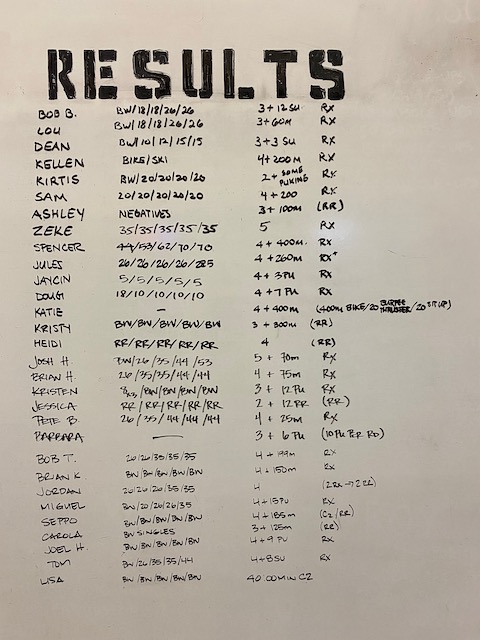 RESULTS
BOB B. BW/18/18/26/26 3+12SU RX
LOU BW/18/18/26/26 3+60M RX
DEAN BW/10/12/15/15 3+3 SU RX
KELLEN BIKE/SKI 4+200M RX
KIRTIS BW/20/20/20/20 2+ SOME PUKING RX
SAM 20/20/20/20/20 4+200 RX
ASHLEY NEGATIVES 3+100M (RR)
ZEKE 35/35/35/35/35 5 RX
SPENCER 44/53/62/70/70 4+400M. RX
JULES 26/26/26/26/28.5 4+260M RX*
JAYCIN 5/5/5/5/5 4+3PU RX
DOUG 18/10/10/10/10 4+7 PU RX
KATIE — 4+400M (400M BIKE/20 BURPEE THRUSTER/20 SIT UP)
KRISTY BW/BW/BW/BW/BW 3+300M (RR)
HEIDI RR/RR/RR/RR/RR 4 (RR)
JOSH H. BW/26/35/44/53 5+70m RX
BRIAN H. 26/35/35/44/44 4+75m RX
KRISTEN /BW/BW/BW/BW 3+12PU RX
JESSICA RR/RR/RR/RR/RR 2+12RR (RR)
PETE B. 26/35/44/44/44 4+25m RX
BARBARA — 3+6PU (10 PU PER RD)
BOB T. 26/26/35/35/35 4+199m RX
BRIAN K BW/BW/BW/BW/BW 4+150m RX
JORDAN 26/26/26/35/35 4 (2RX→2RR)
MIGUEL BW/20/26/26/35 4+15PU RX
SEPPO BW/BW/BW/BW/BW 4+185m (C2/RR)
CAROLA BW SINGLES 3+125m (RR)
JOEL H. BW/BW/BW/BW/BW 4+9 PU RX
TOM BW/26/35/35/44 4+8SU RX
LISA BW/BW/BW/BW/BW 40:00MIN C2